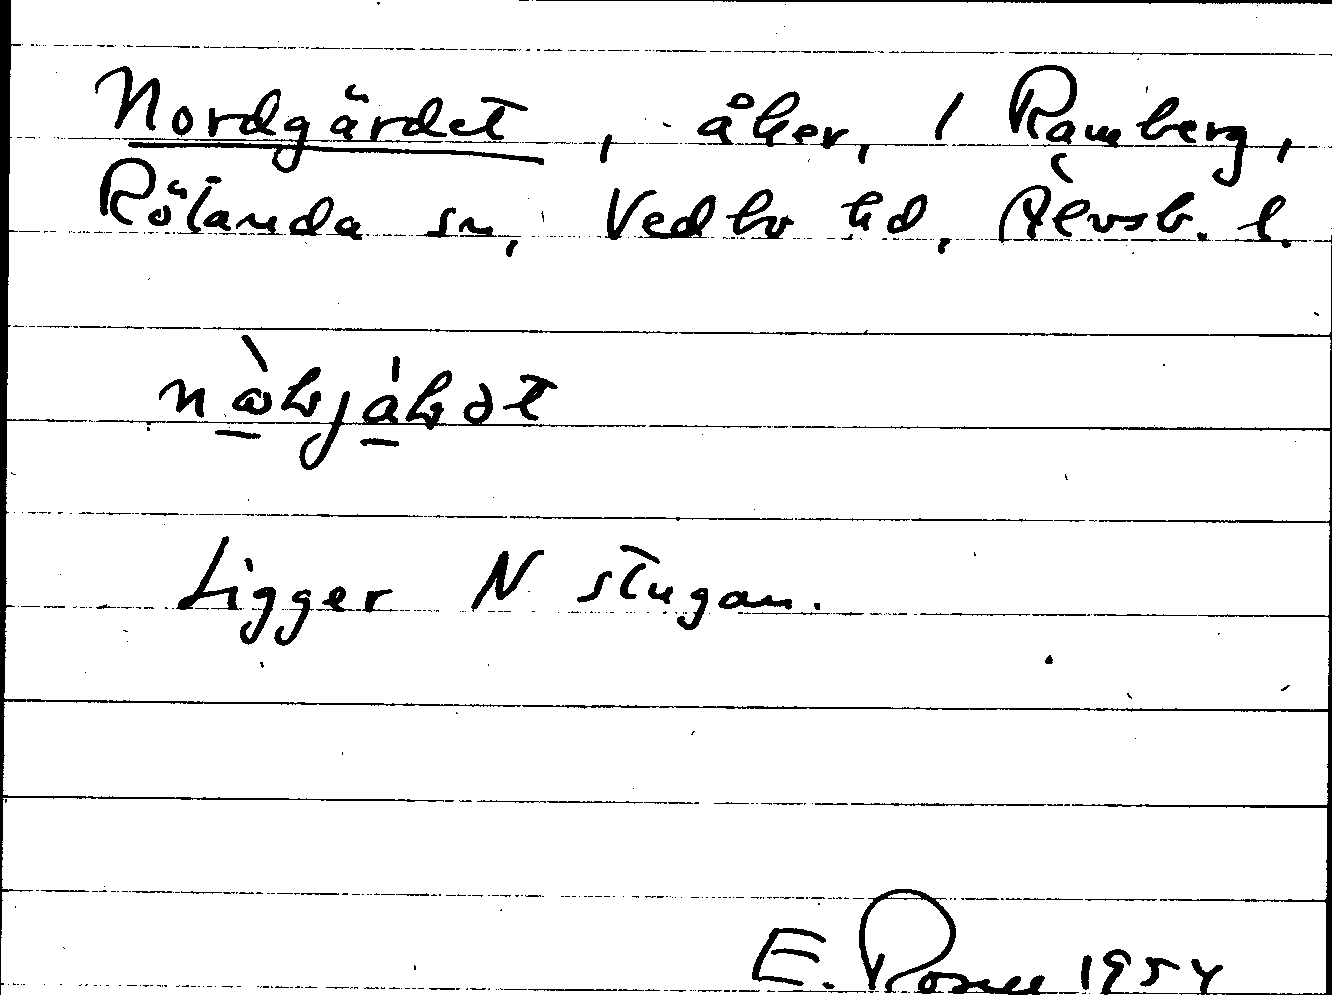 Nordgärdet, åker, 1 Ramberg,
Rölanda sn, Vedbo hd, Älvsb. l.
Ligger N stugan.
E. Rosell 1954